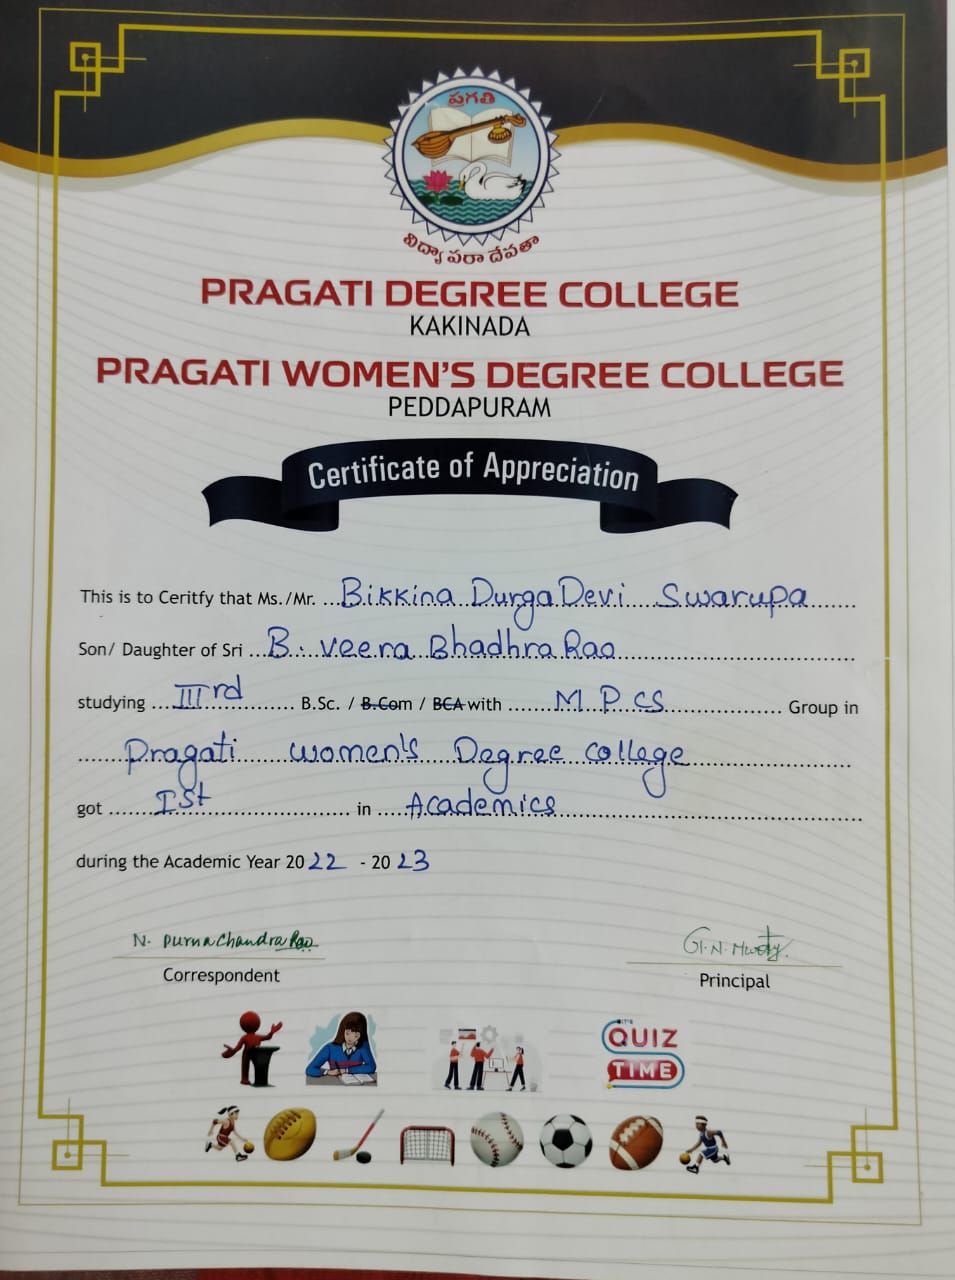 ప్రగతి
విద్యా పరా దేవతా
PRAGATI DEGREE COLLEGE
KAKINADA
PRAGATI WOMEN'S DEGREE COLLEGE
PEDDAPURAM
Certificate of Appreciation
This is to Ceritfy that Ms./Mr. ...Bikkina Durga Devi Swarupa......
Son/ Daughter of Sri ...B. Veera Bhadhra Rao......
studying ...IIIrd...... B.Sc. / B.Com / BCA with ......M.P.CS...... Group in
......Pragati women's Degree college......
got ......Ist...... in ...Academics......
during the Academic Year 2022 - 2023
N. Purna Chandra Rao
G.N. Murty.
Correspondent
Principal
IT'S
QUIZ
TIME